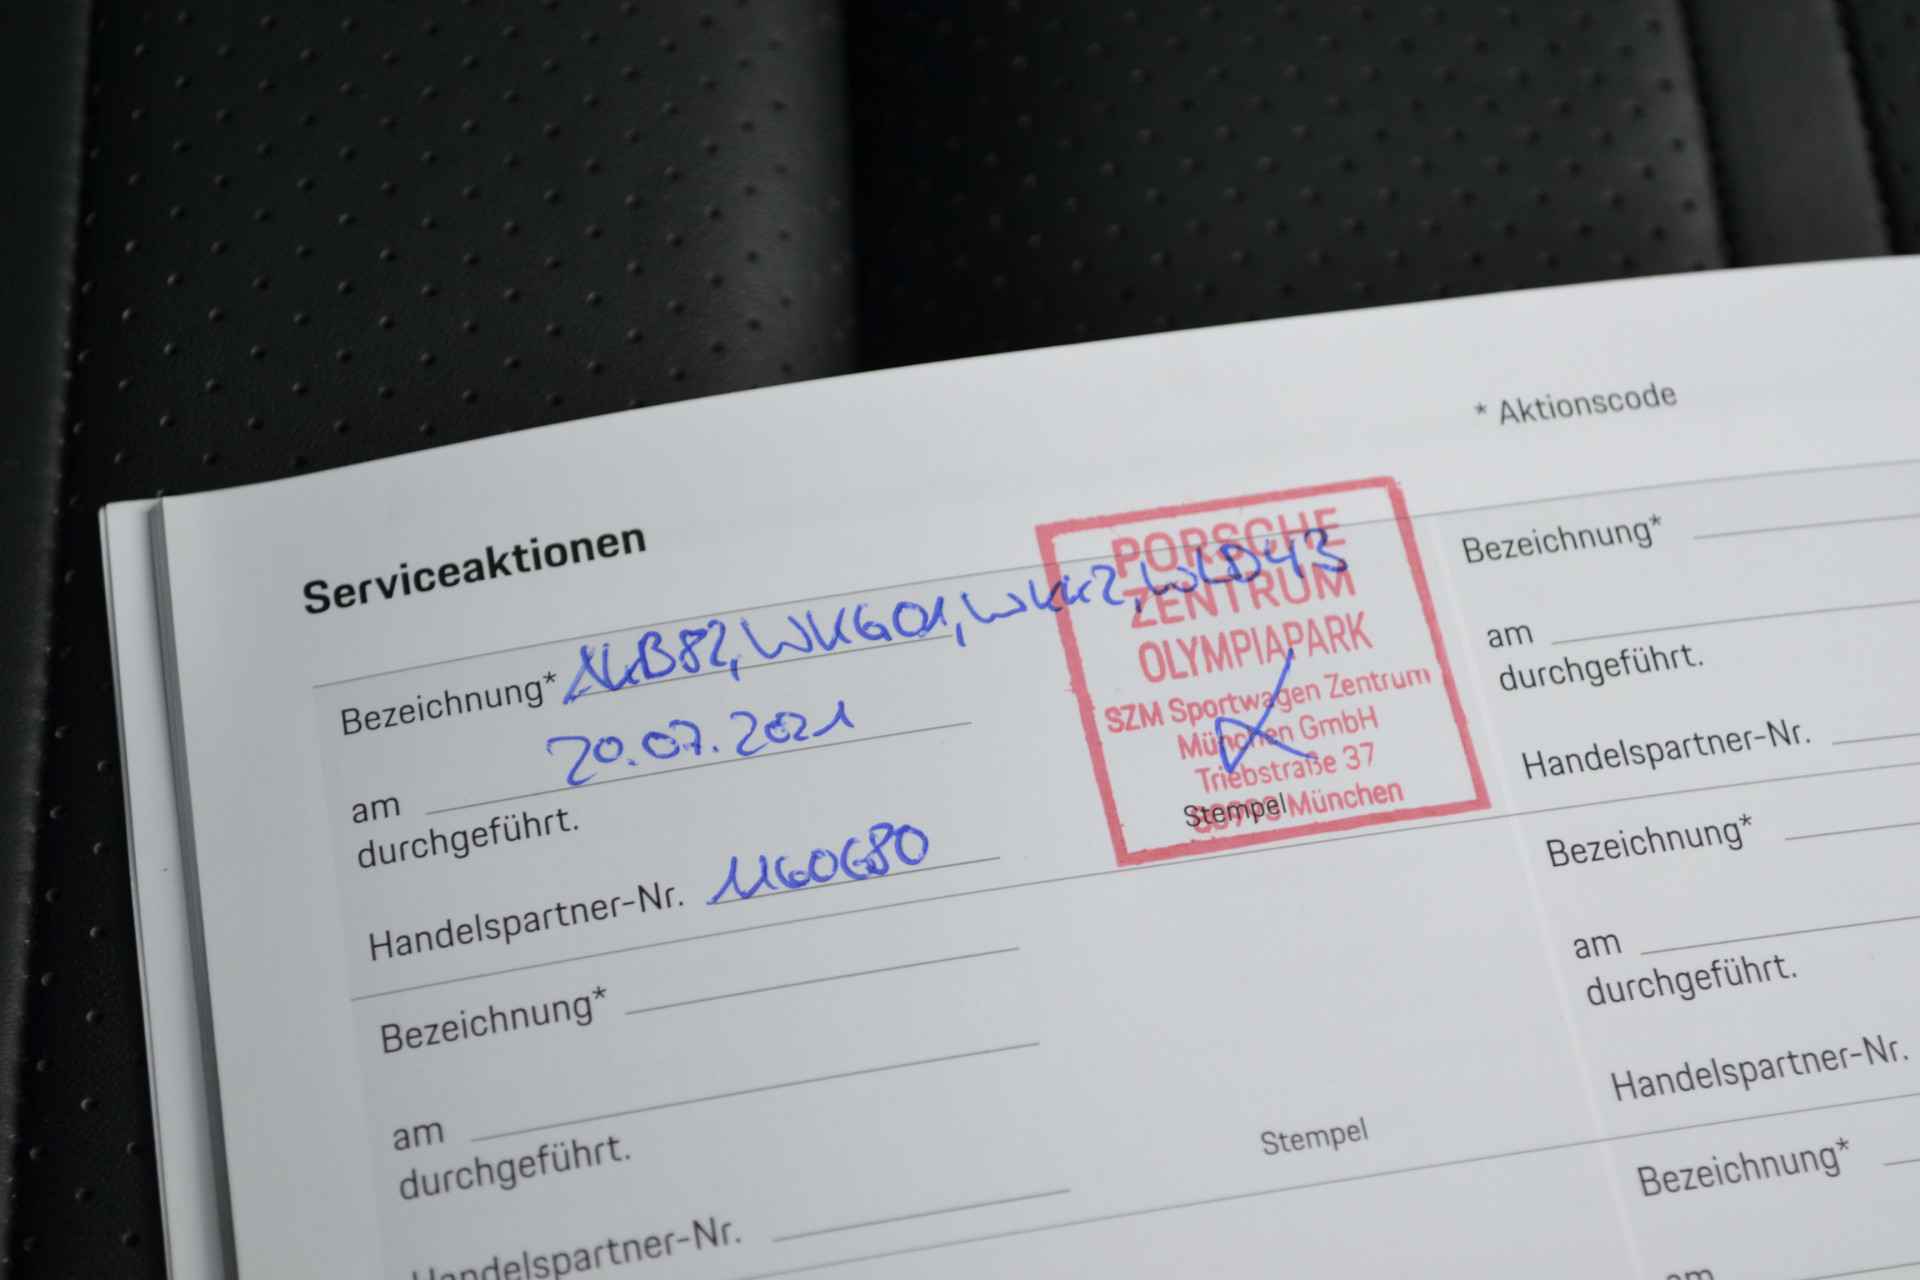 * Aktionscode
Serviceaktionen
Bezeichnung* WKG01,
am 20.07.2021
durchgeführt.
Handelspartner-Nr. 1160680
PORSCHE
ZENTRUM
OLYMPIAPARK
SZM Sportwagen Zentrum
München GmbH
Triebstraße 37
München
Stempel
Bezeichnung*
am
durchgeführt.
Handelspartner-Nr.
Stempel
Bezeichnung*
am
durchgeführt.
Handelspartner-Nr.
Bezeichnung*
am
durchgeführt.
Handelspartner-Nr.
Bezeichnung*
am